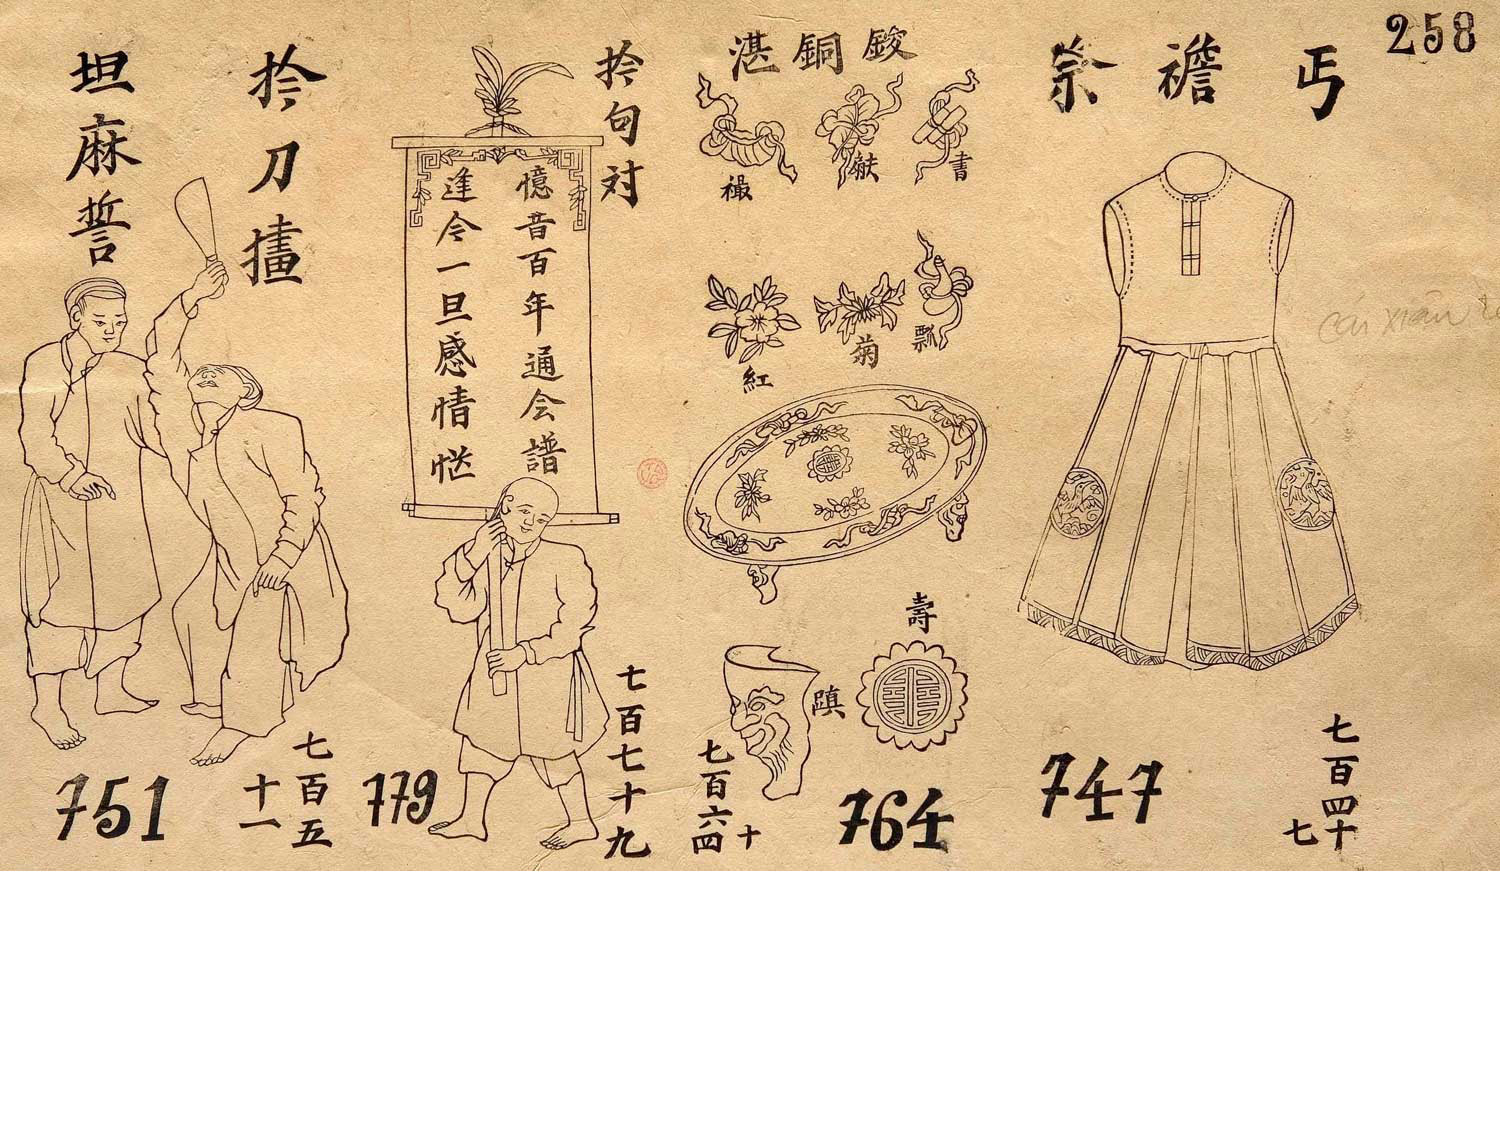 258
丐
襜
祭
Cái xiêm
七百四十
七
747
鋑銅湛
書
𦀺
飄
菊
紅
壽
蹎
七百六十
四
764
拎句对
憶昔百年通会譜
逢今一旦感情
七百七十九
779
拎刀㩇
坦麻誓
七百五
十一
751